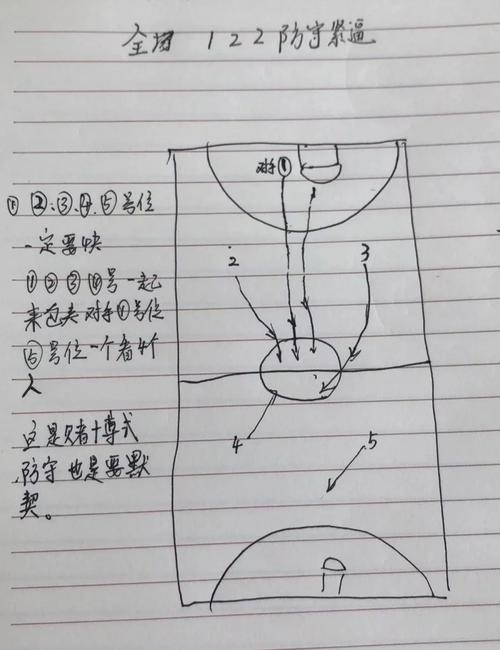 全场 122防守紧逼
对手①
1
①②:③.④.⑤号位
一定要快
2
3
①②③④号一起
来包夹对手①号位
⑤号位一个看4个
人
4
5
这是赌博式
防守也是要默
契。